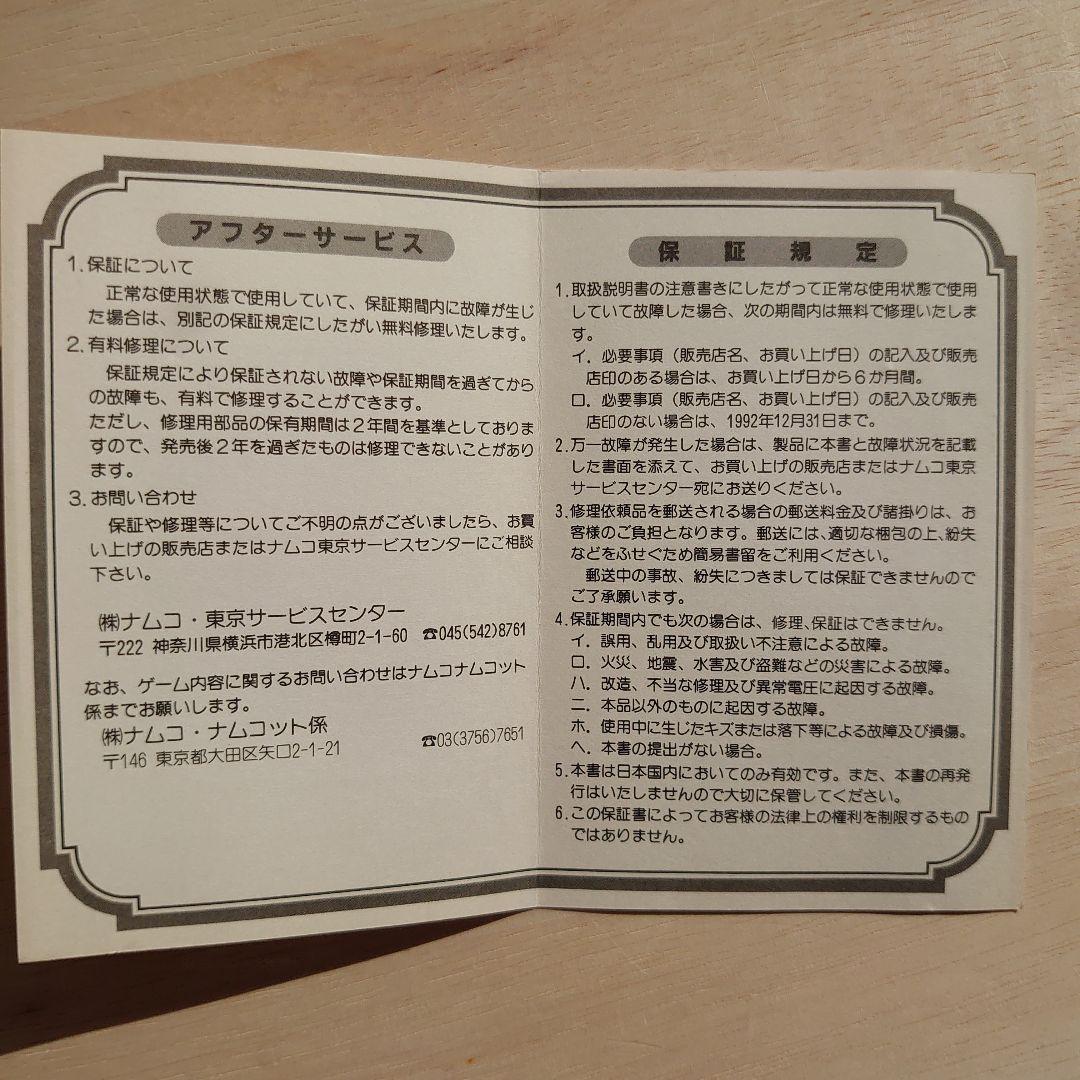 アフターサービス
1.保証について
正常な使用状態で使用していて、保証期間内に故障が生じ
た場合は、別記の保証規定にしたがい無料修理いたします。
2.有料修理について
保証規定により保証されない故障や保証期間を過ぎてから
の故障も、有料で修理することができます。
ただし、修理用部品の保有期間は2年間を基準としておりま
すので、発売後2年を過ぎたものは修理できないことがあり
ます。
3.お問い合わせ
保証や修理等についてご不明の点がございましたら、お買
い上げの販売店またはナムコ東京サービスセンターにご相談
下さい。
㈱ナムコ・東京サービスセンター
〒222 神奈川県横浜市港北区樽町2-1-60 ☎045(542)8761
なお、ゲーム内容に関するお問い合わせはナムコナムコット
係までお願いします。
㈱ナムコ・ナムコット係
〒146 東京都大田区矢口2-1-21 ☎03(3756)7651
保証規定
1.取扱説明書の注意書きにしたがって正常な使用状態で使用
していて故障した場合、次の期間内は無料で修理いたしま
す。
イ．必要事項（販売店名、お買い上げ日）の記入及び販売
店印のある場合は、お買い上げ日から6か月間。
ロ．必要事項（販売店名、お買い上げ日）の記入及び販売
店印のない場合は、1992年12月31日まで。
2.万一故障が発生した場合は、製品に本書と故障状況を記載
した書面を添えて、お買い上げの販売店またはナムコ東京
サービスセンター宛にお送りください。
3.修理依頼品を郵送される場合の郵送料金及び諸掛りは、お
客様のご負担となります。郵送には、適切な梱包の上、紛失
などをふせぐため簡易書留をご利用ください。
郵送中の事故、紛失につきましては保証できませんので
ご了承願います。
4.保証期間内でも次の場合は、修理、保証はできません。
イ．誤用、乱用及び取扱い不注意による故障。
ロ．火災、地震、水害及び盗難などの災害による故障。
ハ．改造、不当な修理及び異常電圧に起因する故障。
ニ．本品以外のものに起因する故障。
ホ．使用中に生じたキズまたは落下等による故障及び損傷。
ヘ．本書の提出がない場合。
5.本書は日本国内においてのみ有効です。また、本書の再発
行はいたしませんので大切に保管してください。
6.この保証書によってお客様の法律上の権利を制限するもの
ではありません。